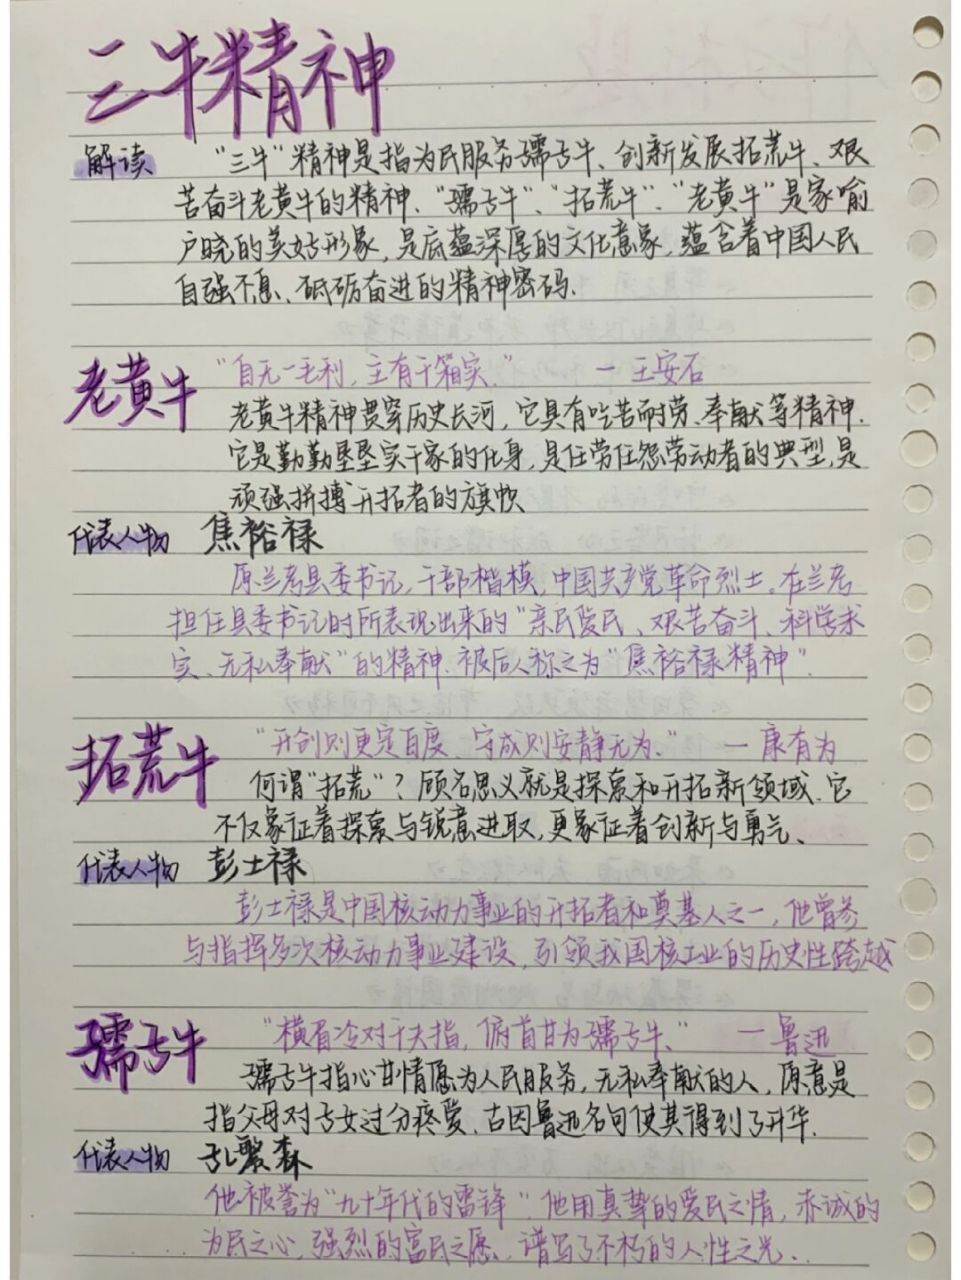 三牛精神
解读 “三牛”精神是指为民服务孺子牛、创新发展拓荒牛、艰
苦奋斗老黄牛的精神.“孺子牛”、“拓荒牛”、“老黄牛”是家喻
户晓的美好形象,是底蕴深厚的文化意象,蕴含着中国人民
自强不息、砥砺奋进的精神密码.
老黄牛 “自无一毛利,主有千箱实.” — 王安石
老黄牛精神贯穿历史长河,它具有吃苦而耐劳、奉献等精神.
它是勤勤恳恳实干家的化身,是任劳任怨劳动者的典型,是
顽强拼搏开拓者的旗帜
代表人物 焦裕禄
原兰考县委书记,干部楷模,中国共产党革命烈士。在兰考
担任县委书记时所表现出来的“亲民爱民、艰苦奋斗、科学求
实、无私奉献”的精神.被后人称之为“焦裕禄精神”
拓荒牛 “开创则更定百度、守成则安静无为.” — 康有为
何谓“拓荒”?顾名思义就是探索和开拓新领域.它
不仅象征着探索与锐意进取,更象征着创新与勇气、
代表人物 彭士禄
彭士禄是中国核动力事业的开拓者和奠基人之一,他曾参
与指挥多次核动力事业建设,引领我国核工业的历史性跨越
孺子牛 “横眉冷对千夫指,俯首甘为孺子牛、” — 鲁迅
孺子牛指心甘情愿为人民服务,无私奉献的人,原意是
指父母对子女过分疼爱、古因鲁迅名句使其得到了升华.
代表人物 孔繁森
他被誉为“九十年代的雷锋”他用真挚的爱民之情,赤诚的
为民之心,强烈的富民之愿、谱写了不朽的人性之光..